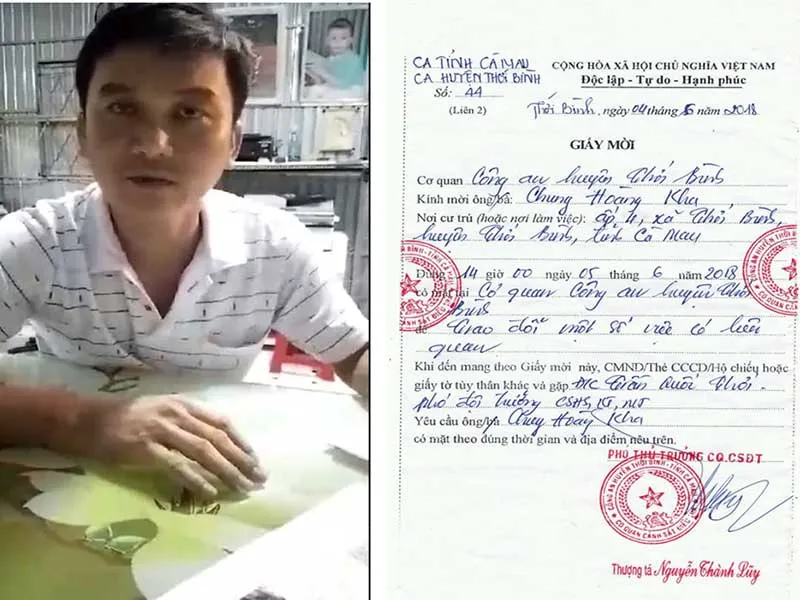 CA TỈNH CÀ MAU
CA HUYỆN THỚI BÌNH
Số: 44
(Liên 2)
CỘNG HÒA XÃ HỘI CHỦ NGHĨA VIỆT NAM
Độc lập - Tự do - Hạnh phúc
Thới Bình, ngày 04 tháng 6 năm 2018
GIẤY MỜI
Cơ quan Công an huyện Thới Bình
Kính mời ông/bà: Chung Hoàng Kha
Nơi cư trú (hoặc nơi làm việc): ấp 11, xã Thới Bình,
huyện Thới Bình, tỉnh Cà Mau
Đúng 14 giờ 00 ngày 05 tháng 6 năm 2018
có mặt tại Cơ quan Công an huyện Thới
Bình
để Trao đổi một số việc có liên
quan
Khi đến mang theo Giấy mời này, CMND/Thẻ CCCD/Hộ chiếu hoặc
giấy tờ tùy thân khác và gặp Đ/C Trần Quốc Thới.
phó đội trưởng CSHS, KT, MT
Yêu cầu ông/bà Chung Hoàng Kha
có mặt theo đúng thời gian và địa điểm nêu trên.
PHÓ THỦ TRƯỞNG CQ.CSĐT
CÔNG AN HUYỆN THỚI BÌNH - TỈNH CÀ MAU
CƠ QUAN CẢNH SÁT ĐIỀU
Thượng tá Nguyễn Thành Lũy